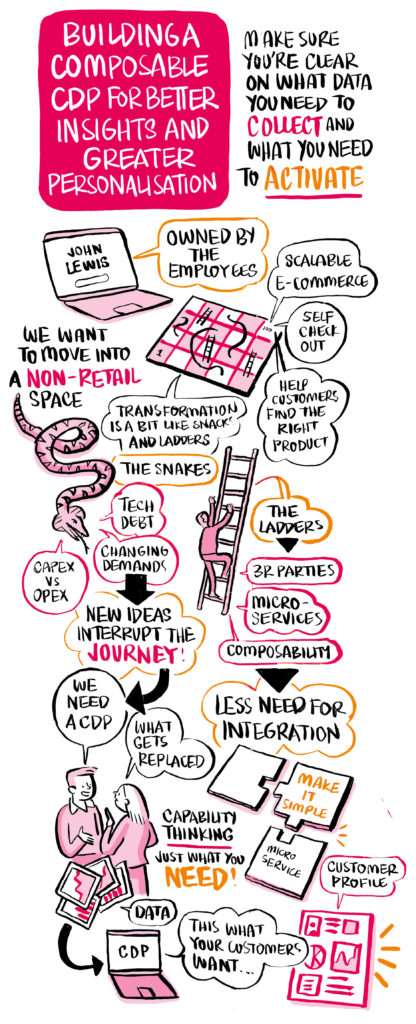 BUILDING A
COMPOSABLE
CDP FOR BETTER
INSIGHTS AND
GREATER
PERSONALISATION
MAKE SURE
YOU'RE CLEAR
ON WHAT DATA
YOU NEED TO
COLLECT AND
WHAT YOU NEED
TO ACTIVATE
JOHN
LEWIS
OWNED BY
THE
EMPLOYEES
SCALABLE
E-COMMERCE
SELF
CHECK
OUT
HELP
CUSTOMERS
FIND THE
RIGHT
PRODUCT
100
1
WE WANT
TO MOVE INTO
A NON-RETAIL
SPACE
TRANSFORMATION
IS A BIT LIKE SNACKS
AND LADDERS
THE SNAKES
TECH
DEBT
CHANGING
DEMANDS
CAPEX
VS
OPEX
NEW IDEAS
INTERRUPT THE
JOURNEY!
THE
LADDERS
3R PARTIES
MICRO-
SERVICES
COMPOSABILITY
LESS NEED FOR
INTEGRATION
WE
NEED
A CDP
WHAT
GETS
REPLACED
MAKE
IT
SIMPLE
MICRO
SERVICE
CAPABILITY
THINKING
JUST WHAT YOU
NEED!
CUSTOMER
PROFILE
DATA
CDP
THIS WHAT
YOUR CUSTOMERS
WANT...